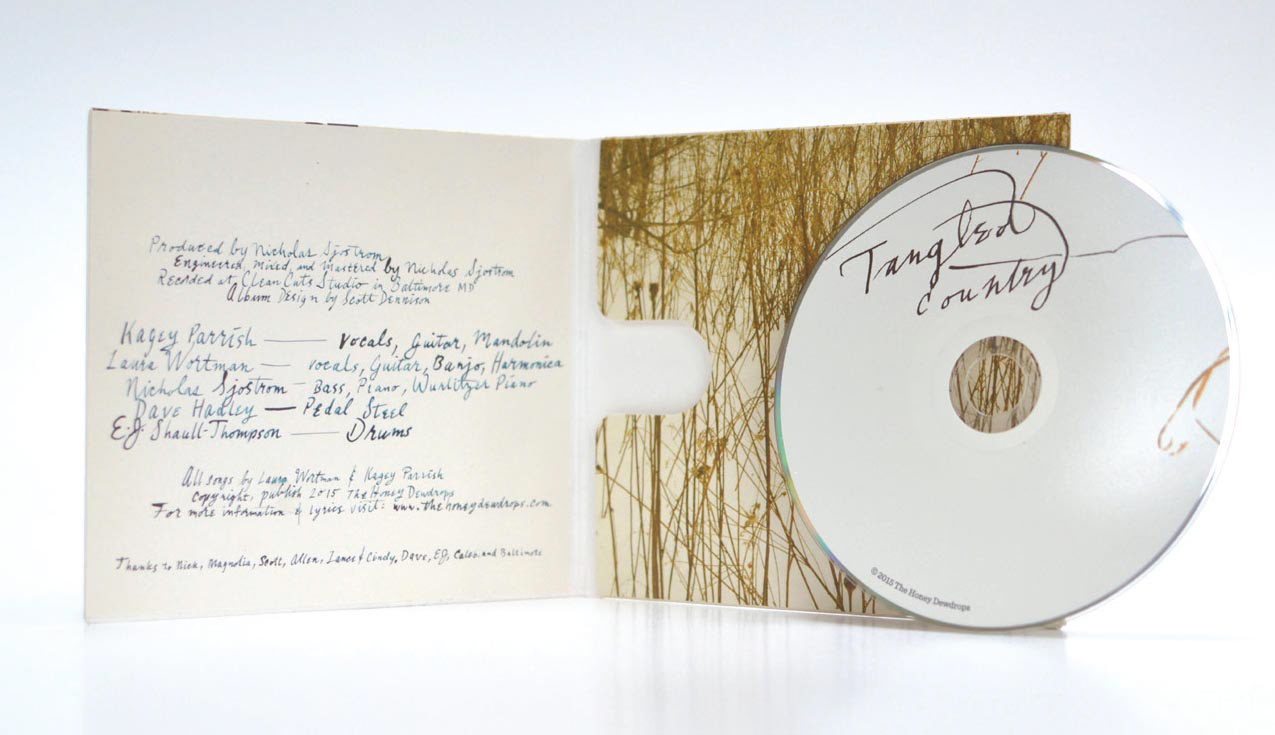 Produced by Nicholas Sjostrom
Engineered, mixed and mastered by Nicholas Sjostrom
Recorded at Clean Cuts Studio in Baltimore MD
Album Design by Scott Dennison
Kagey Parrish — Vocals, Guitar, Mandolin
Laura Wortman — vocals, Guitar, Banjo, Harmonica
Nicholas Sjostrom — Bass, Piano, Wurlitzer Piano
Dave Hadley — Pedal Steel
E.J. Shaull-Thompson — Drums
All songs by Laura Wortman & Kagey Parrish
copyright, publish 2015 The Honey Dewdrops
For more information & lyrics visit: www.thehoneydewdrops.com
Thanks to Nick, Magnolia, Scott, Allen, Lance & Cindy, Dave, EJ, Caleb and Baltimore
Tangled
country
© 2015 The Honey Dewdrops